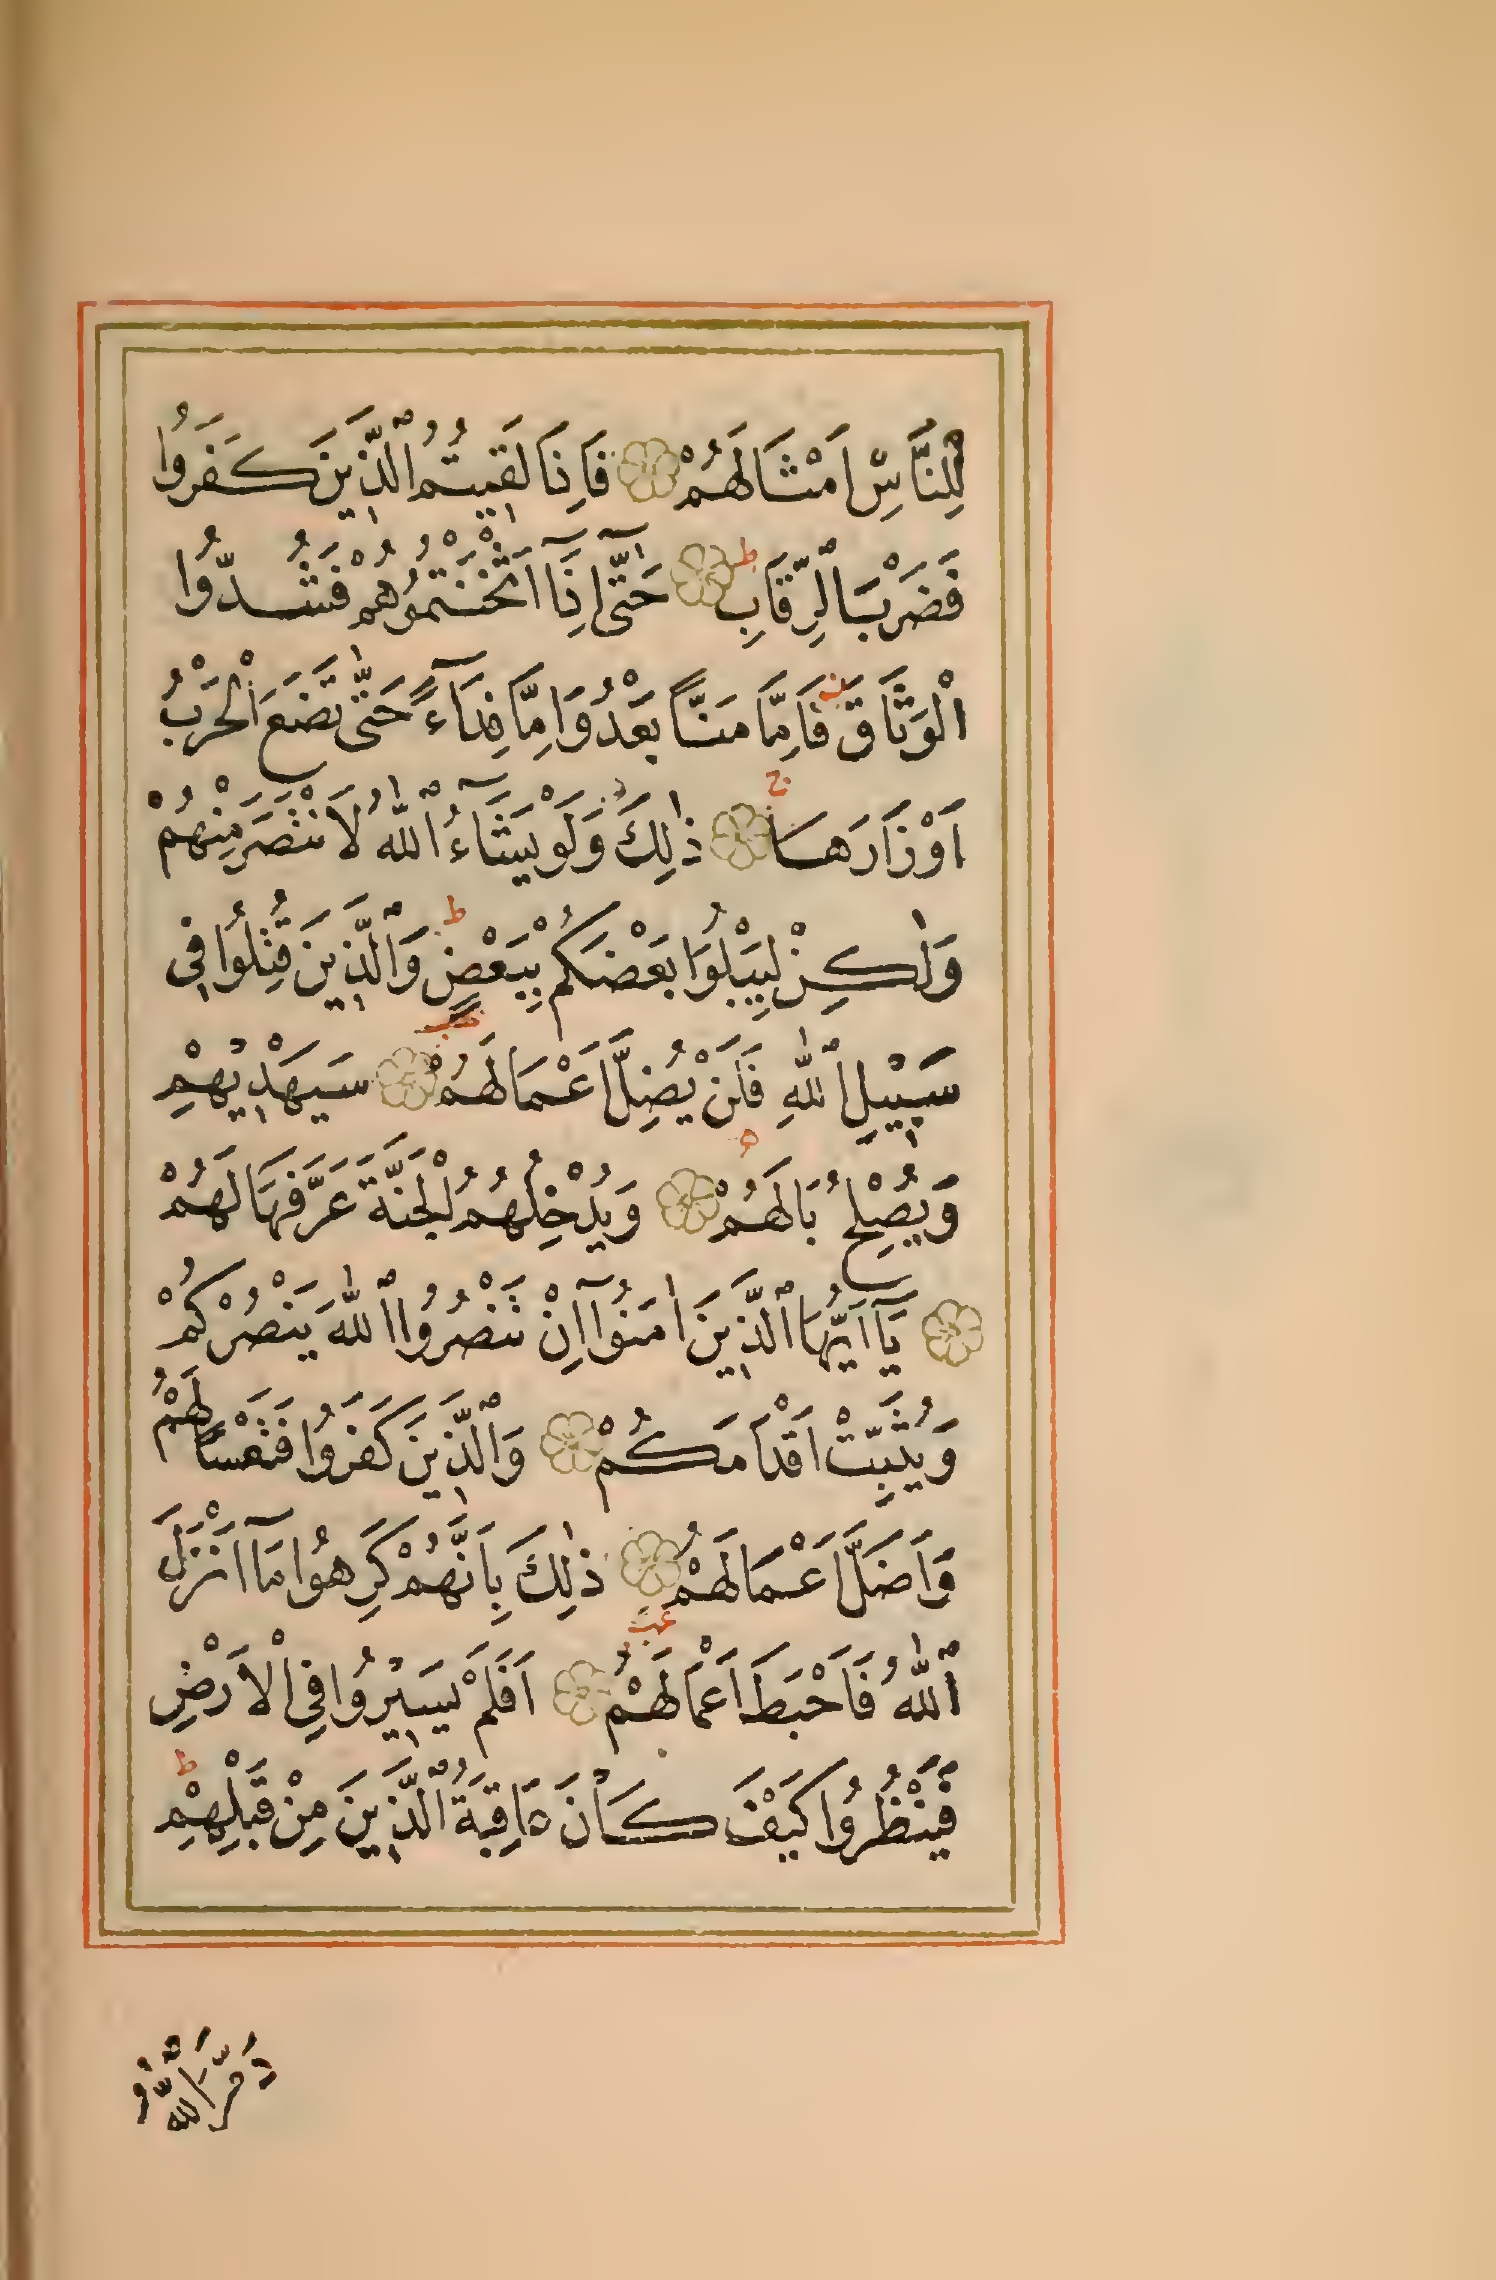 لِلنَّاسِ اَمْثَالَهُمْ فَاِذَا لَقِيتُمُ الَّذِينَ كَفَرُوا
فَضَرْبَ الرِّقَابِ ط حَتَّى اِذَا اَثْخَنْتُمُوهُمْ فَشُدُّوا
الْوَثَاقَ فَاِمَّا مَنًّا بَعْدُ وَاِمَّا فِدَآءً حَتّٰى تَضَعَ الْحَرْبُ
اَوْزَارَهَا ج ذٰلِكَ وَلَوْ يَشَآءُ اللّٰهُ لَانْتَصَرَ مِنْهُمْ
وَلٰكِنْ لِيَبْلُوَا بَعْضَكُمْ بِبَعْضٍ ط وَالَّذِينَ قُتِلُوا فِي
سَبِيلِ اللّٰهِ فَلَنْ يُضِلَّ اَعْمَالَهُمْ سَيَهْدِيهِمْ
وَيُصْلِحُ بَالَهُمْ ه وَيُدْخِلُهُمُ الْجَنَّةَ عَرَّفَهَا لَهُمْ
يَآ اَيُّهَا الَّذِينَ اٰمَنُوآ اِنْ تَنْصُرُوا اللّٰهَ يَنْصُرْكُمْ
وَيُثَبِّتْ اَقْدَامَكُمْ وَالَّذِينَ كَفَرُوا فَتَعْسًا لَهُمْ
وَاَضَلَّ اَعْمَالَهُمْ ذٰلِكَ بِاَنَّهُمْ كَرِهُوا مَآ اَنْزَلَ
اللّٰهُ فَاَحْبَطَ اَعْمَالَهُمْ اَفَلَمْ يَسِيرُوا فِي الْاَرْضِ
فَيَنْظُرُوا كَيْفَ كَانَ عَاقِبَةُ الَّذِينَ مِنْ قَبْلِهِمْ ط
دَمَّرَ اللّٰهُ